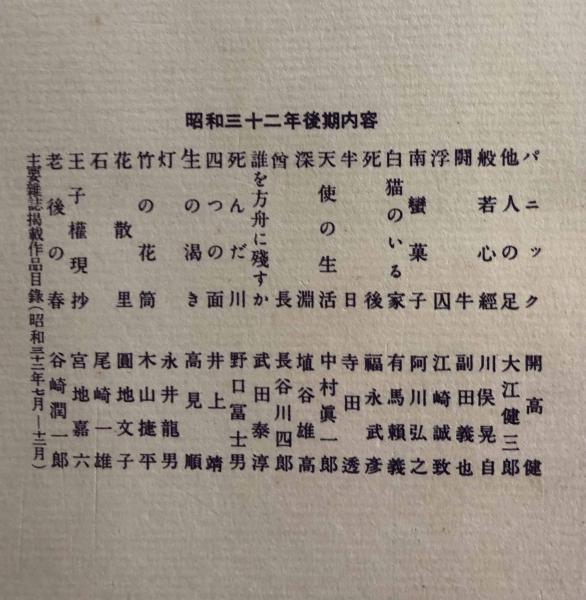 昭和三十二年後期内容
パニック 開高健
他人の足 大江健三郎
般若心經 川俣晃自
闘牛 副田義也
浮囚 江崎誠致
南蠻菓子 阿川弘之
白猫のいる家 有馬頼義
死後 福永武彥
半日 寺田透
天使の生活 中村眞一郎
深淵 埴谷雄高
酋長 長谷川四郎
誰を方舟に殘すか 武田泰淳
死んだ川 野口冨士男
四つの面 井上靖
生の渇き 高見順
灯 永井龍男
竹の花筒 木山捷平
花散里 圓地文子
石 尾崎一雄
王子權現抄 宮地嘉六
老後の春 谷崎潤一郎
主要雜誌揭載作品目錄(昭和三十二年七月—十二月)